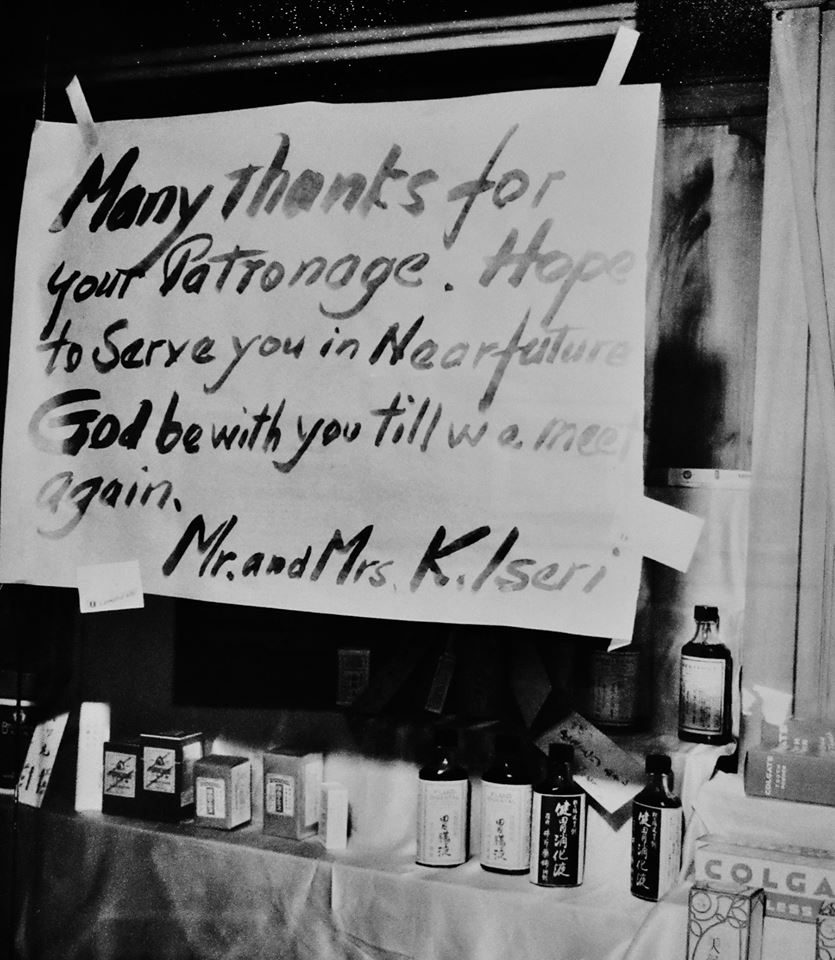 Many thanks for
your Patronage. Hope
to Serve you in Near future
God be with you till we meet
again.
Mr. and Mrs. K. Iseri
胃腸液
胃腸液
健胃消化液
健胃消化液
COLGATE
COLGA
LESS